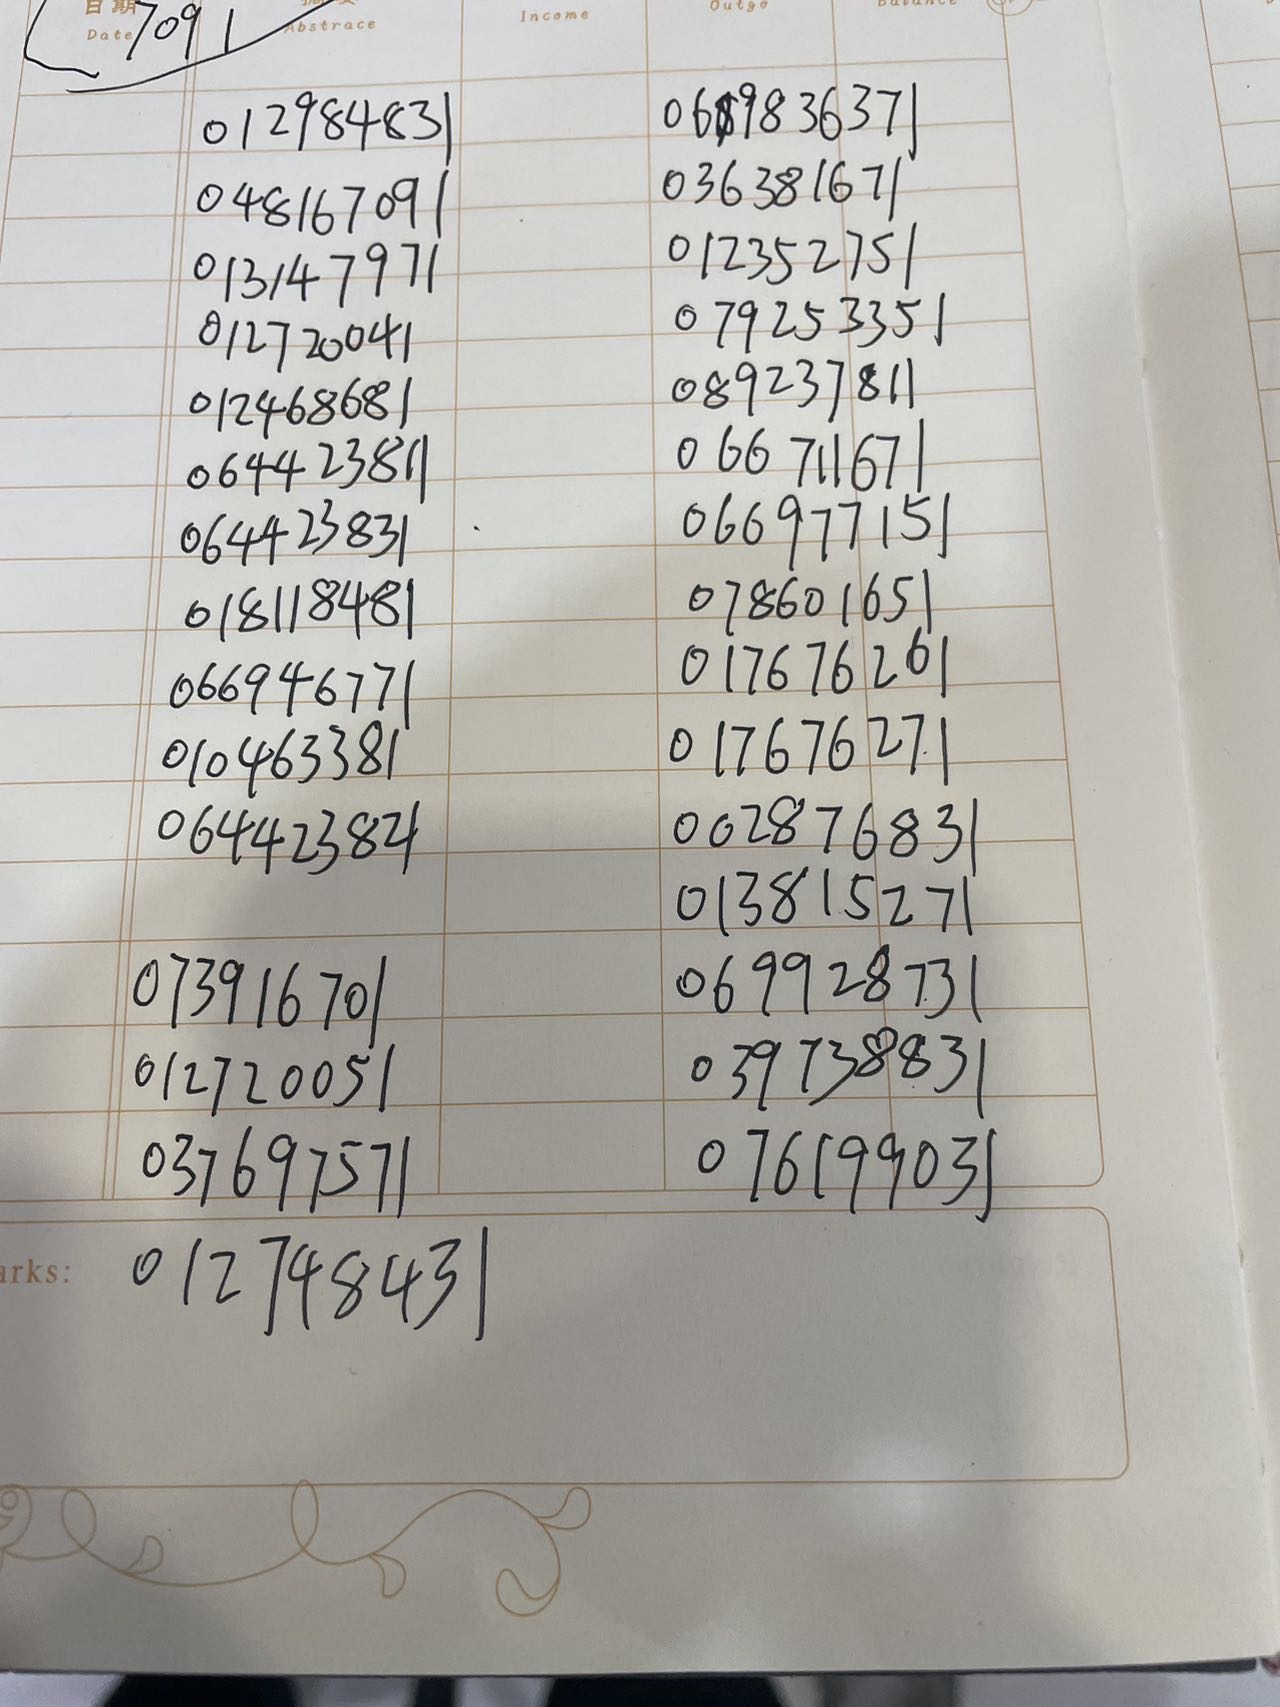 日期
Date
7091
Abstrace
Income
Outgo
Balance
012984831
048167091
013147971
012720041
012468681
064423811
064423831
018118481
066946771
010463381
064423821
073916701
012720051
037697571
012748431
036381671
012352751
079253351
089237811
066711671
066977151
078601651
017676261
017676271
002876831
013815271
069928731
039738831
076199031
arks: